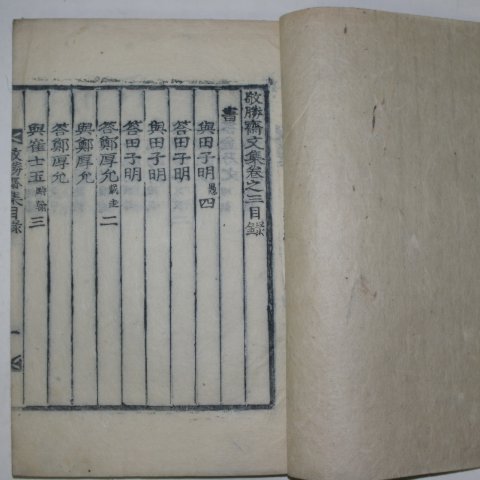 敬勝齋文集卷之三目錄
書
與田子明 四
答田子明
與田子明
答田子明
答鄭厚允 二
與鄭厚允
答鄭厚允
與崔士五 三
敬勝齋集目錄
一